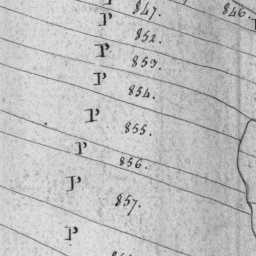 847.
846.
P 852.
P 859.
P 854.
P 855.
P 856.
P 857.
P